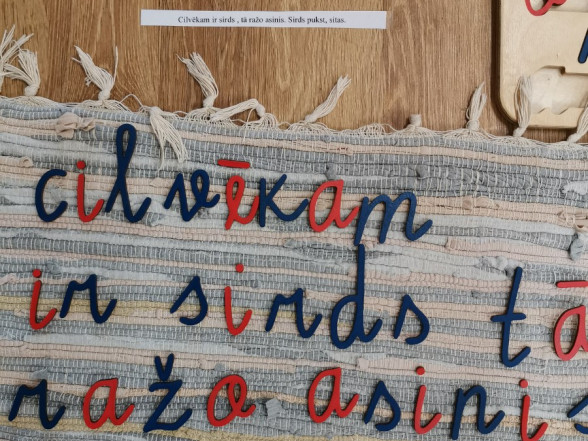 Cilvēkam ir sirds , tā ražo asinis. Sirds pukst, sitas.
cilvēkam
ir sirds tā
ražo asinis